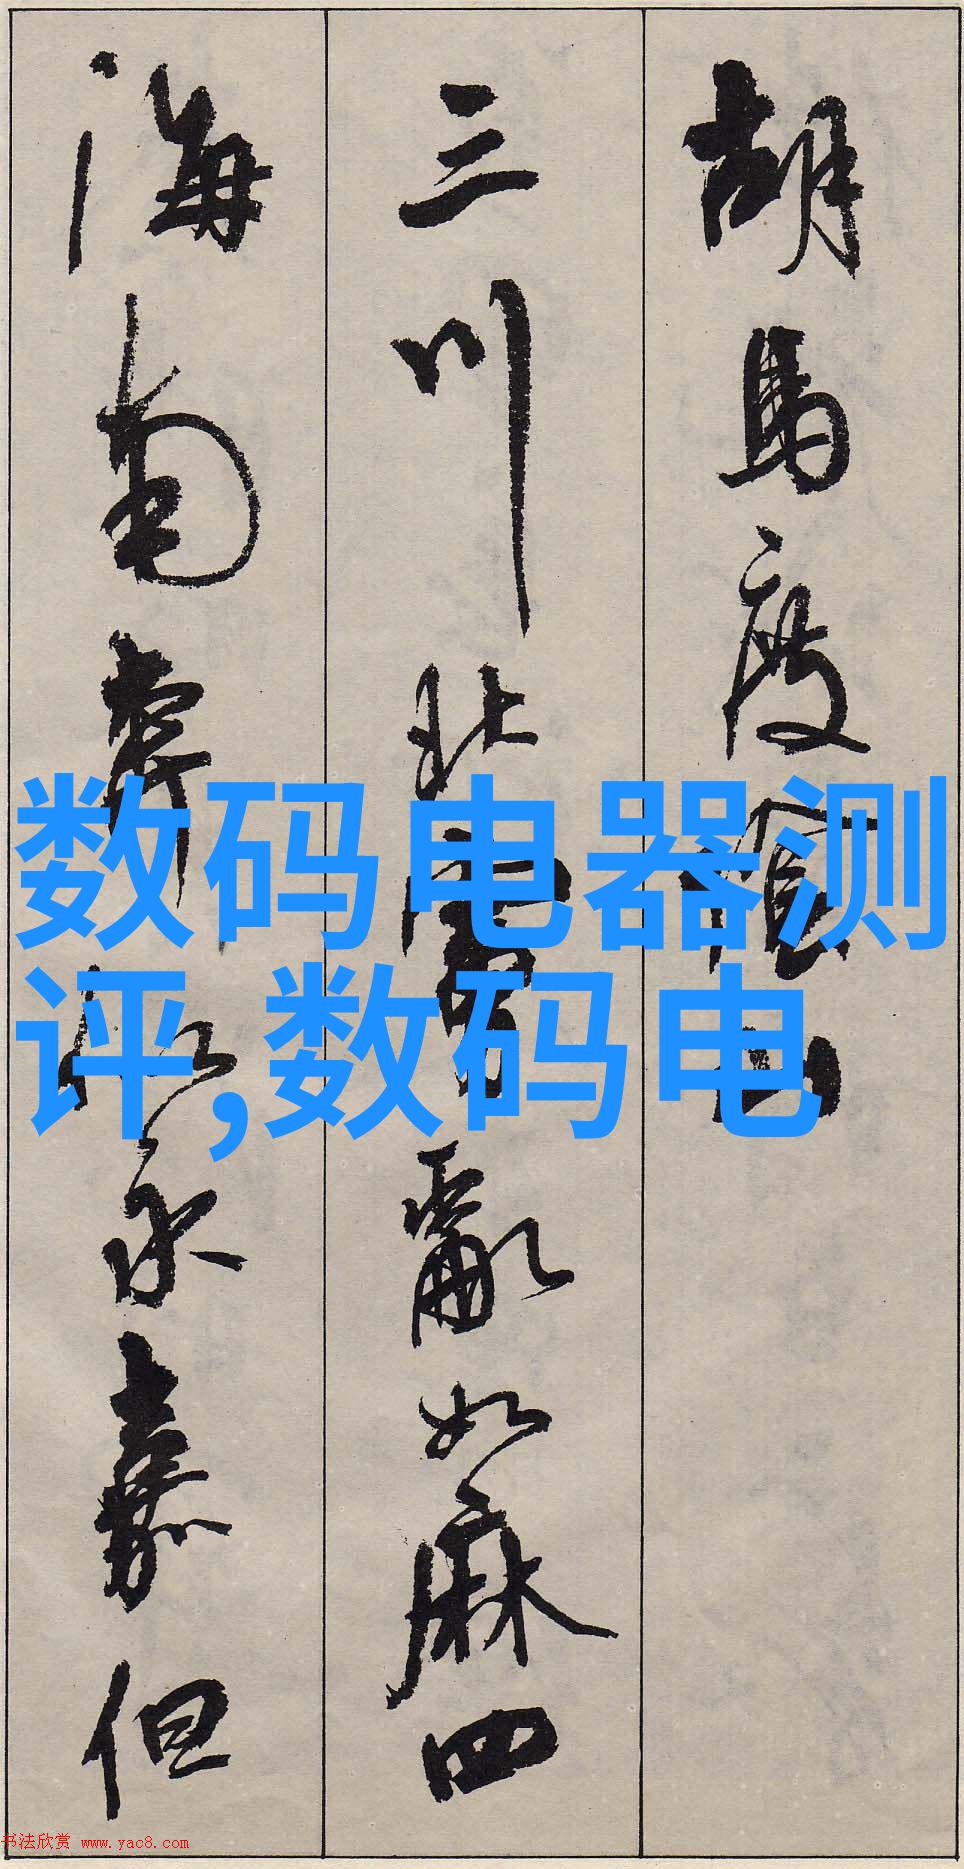 胡馬度陰山
三川北虜亂如麻四
海南奔似永嘉但
数码电器测
评,数码电
书法欣赏 www.yac8.com